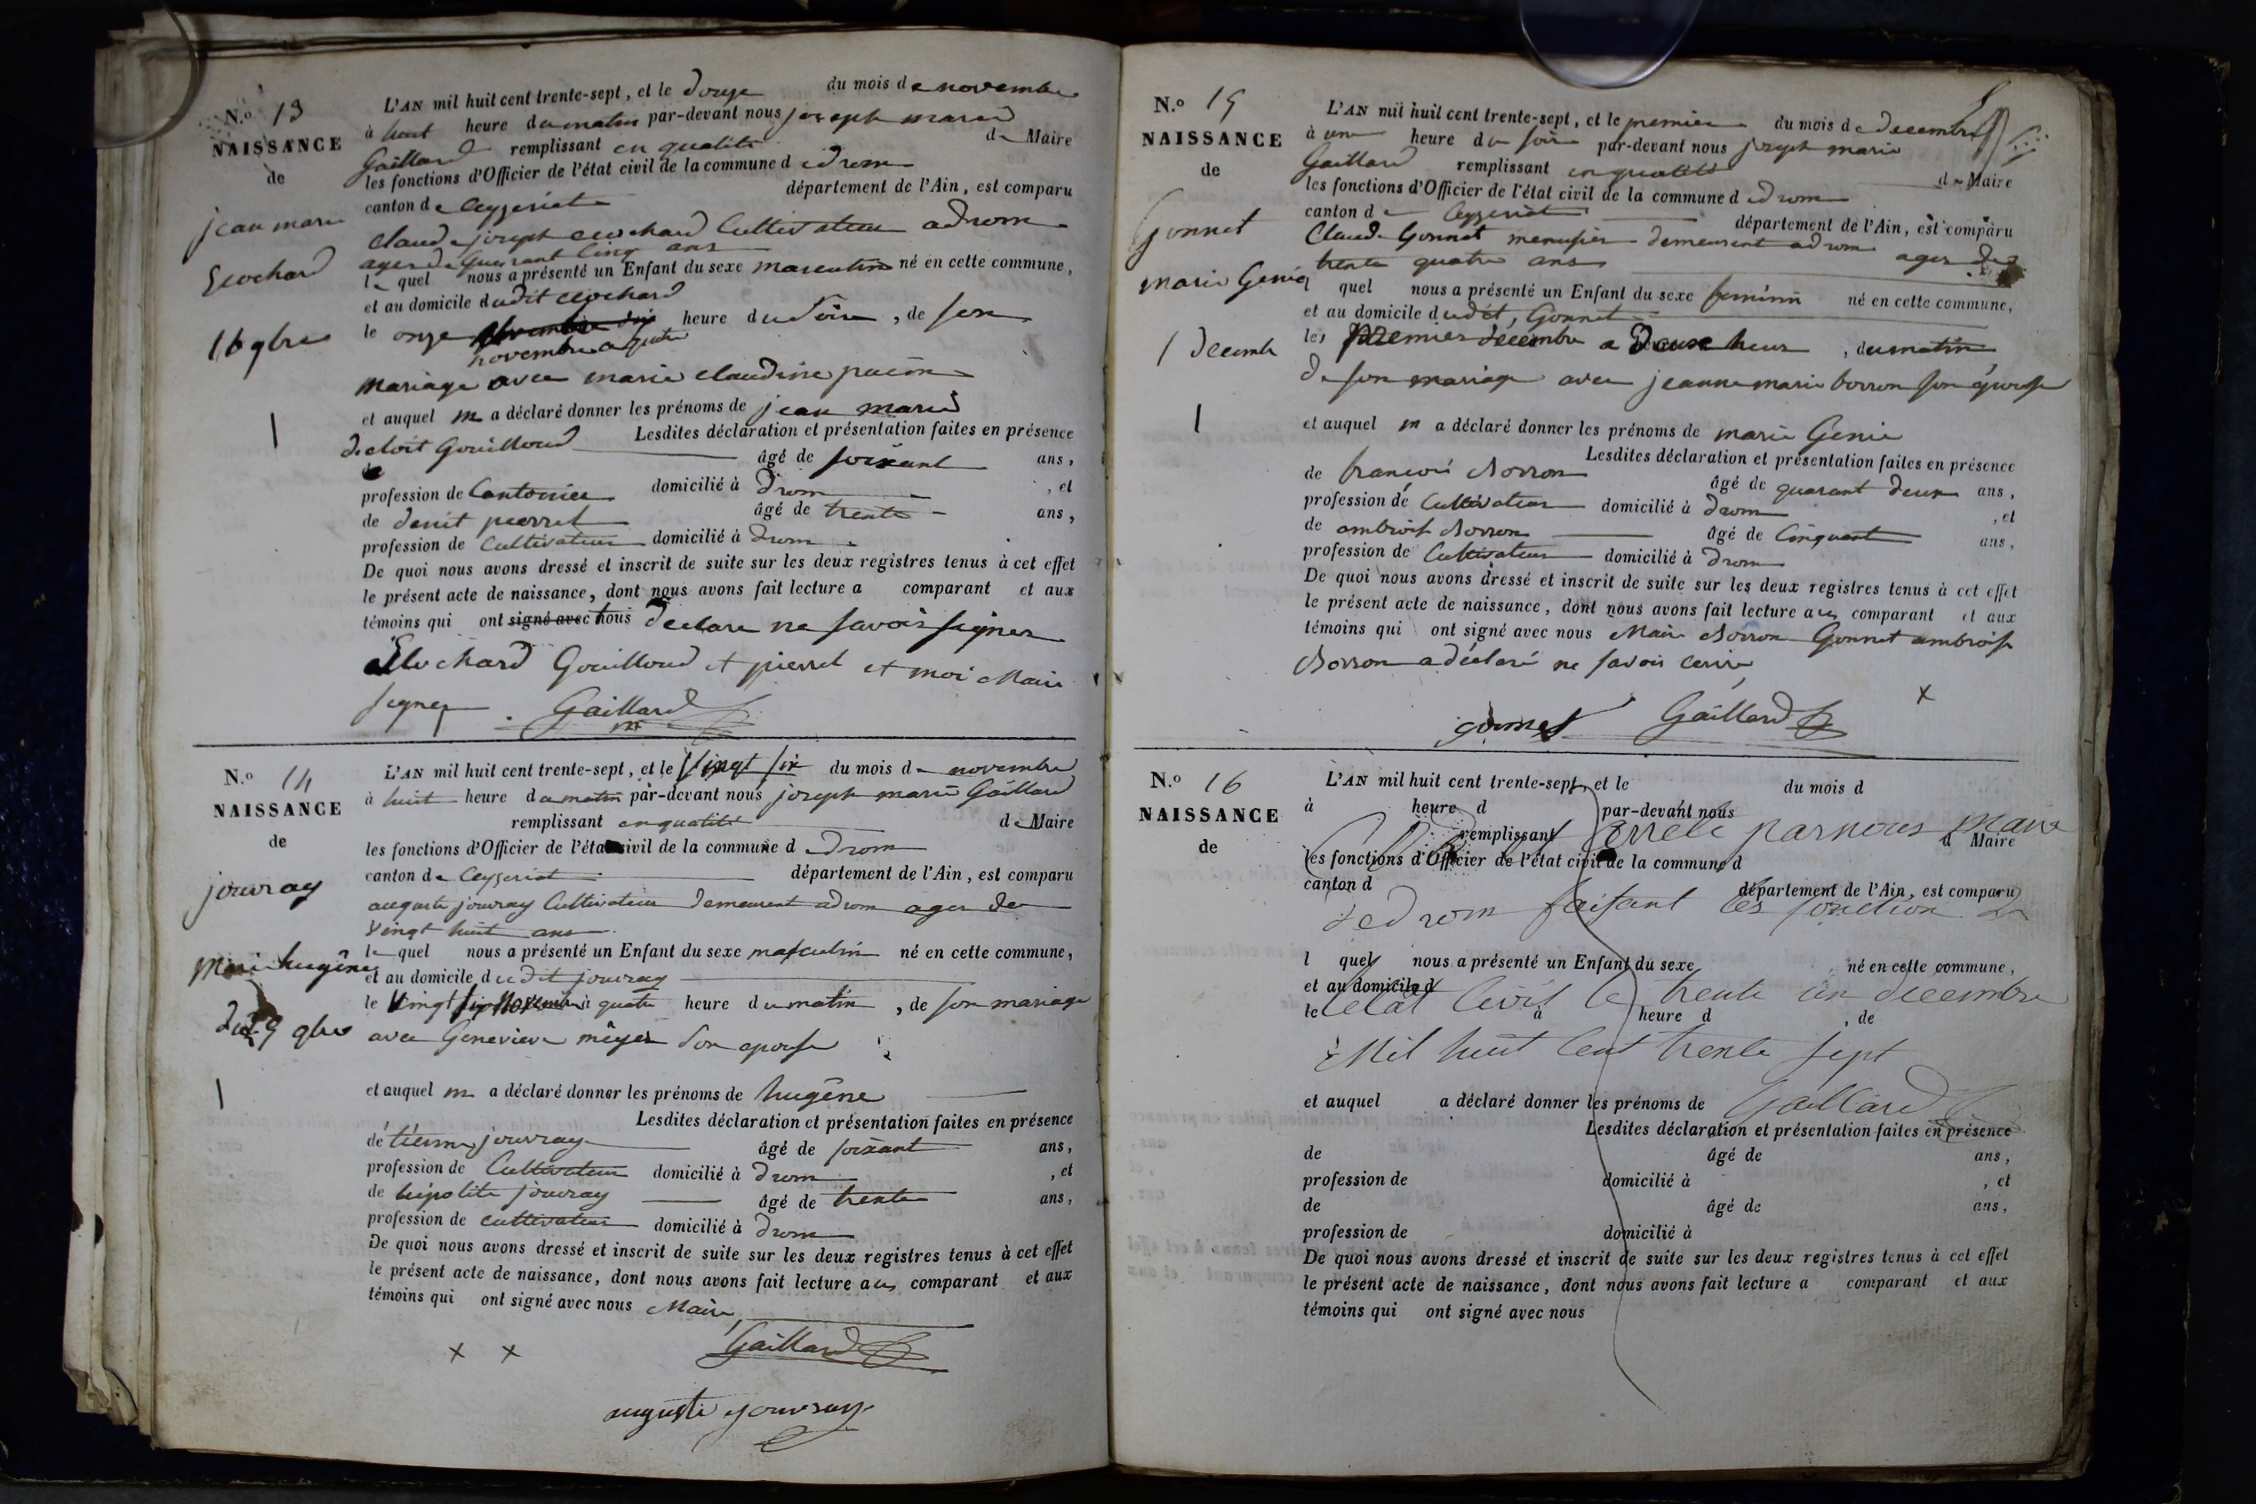 N.o 13
NAISSANCE
de
jean marie
Ecochard
L'AN mil huit cent trente-sept, et le douze du mois de novembre
à huit heure du matin par-devant nous joseph marie
Gaillard remplissant en qualité de Maire
les fonctions d'Officier de l'état civil de la commune d drom
canton de Ceyzeriat département de l'Ain, est comparu
claude joseph ecochard Cultivateur a drom
ager de quarant cinq ans
le quel nous a présenté un Enfant du sexe masculin né en cette commune,
et au domicile dudit ecochard
le onze heure du soir, de son
novembre a quatre
mariage avec marie claudine
et auquel m a déclaré donner les prénoms de jean marie
Lesdites déclaration et présentation faites en présence
de Gouilloud âgé de soixant ans,
profession de Cantonier domicilié à Drom, et
de denit pierrel âgé de trente ans,
profession de Cultivateur domicilié à Drom
De quoi nous avons dressé et inscrit de suite sur les deux registres tenus à cet effet
le présent acte de naissance, dont nous avons fait lecture a comparant et aux
témoins qui ont signé avec nous declare ne savoir signer
Ecochard Gouilloud et pierrel et moi Maire
signer Gaillard
N.o 14
NAISSANCE
de
jouvray
L'AN mil huit cent trente-sept, et le Vingt six du mois de novembre
à huit heure du matin par-devant nous joseph marie Gaillard
remplissant en qualité de Maire
les fonctions d'Officier de l'état civil de la commune d Drom
canton de Ceyzeriat département de l'Ain, est comparu
auguste jouvray Cultivateur demeurent a drom ager de
vingt huit ans
le quel nous a présenté un Enfant du sexe masculin né en cette commune,
et au domicile dudit jouvray
le Vingt six Novembre à quatre heure du matin, de son mariage
avec Genevieve méyer son epouse
et auquel m a déclaré donner les prénoms de hugêne
Lesdites déclaration et présentation faites en présence
de tienne jouvray âgé de soixant ans,
profession de Cultivateur domicilié à Drom, et
de hipolite jouvray âgé de trente ans,
profession de cultivateur domicilié à Drom
De quoi nous avons dressé et inscrit de suite sur les deux registres tenus à cet effet
le présent acte de naissance, dont nous avons fait lecture aux comparant et aux
témoins qui ont signé avec nous Maire
Gaillard
auguste jouvray
N.o 15
NAISSANCE
de
Gonnet
marie Genie
1 Decembre
L'AN mil huit cent trente-sept, et le premier du mois de decembre
à une heure du soir par-devant nous joseph marie
Gaillard remplissant en qualité de Maire
les fonctions d'Officier de l'état civil de la commune d drom
canton de Ceyzeriat département de l'Ain, est comparu
Claude Gonnet menusier demeurent a drom ager de
trente quatre ans
quel nous a présenté un Enfant du sexe feminin né en cette commune,
et au domicile dudit, Gonnet
le premier décembre a Deuxe heur, du matin
de son mariage avec jeanne marie borron son épouse
et auquel m a déclaré donner les prénoms de marie Genie
Lesdites déclaration et présentation faites en présence
de françois Borron âgé de quarant deux ans,
profession de Cultivateur domicilié à drom, et
de ambroise Borron âgé de Cinquant ans,
profession de Cultivateur domicilié à Drom
De quoi nous avons dressé et inscrit de suite sur les deux registres tenus à cet effet
le présent acte de naissance, dont nous avons fait lecture aux comparant et aux
témoins qui ont signé avec nous Maire Borron Gonnet ambroise
Borron a déclaré ne savoir ecrire
gonnet Gaillard
N.o 16
NAISSANCE
de
L'AN mil huit cent trente-sept, et le du mois d
à heure d par-devant nous
remplissant d Maire
arrete par nous maire
les fonctions d'Officier de l'état civil de la commune d
canton d département de l'Ain, est comparu
de drom faisant les fonction de
l quel nous a présenté un Enfant du sexe né en cette commune,
et au domicile d
le à heure d, de
létat Civil le trente un decembre
Mil huit Cent trente sept
et auquel a déclaré donner les prénoms de
Gaillard
Lesdites déclaration et présentation faites en présence
de âgé de ans,
profession de domicilié à, et
de âgé de ans,
profession de domicilié à
De quoi nous avons dressé et inscrit de suite sur les deux registres tenus à cet effet
le présent acte de naissance, dont nous avons fait lecture a comparant et aux
témoins qui ont signé avec nous